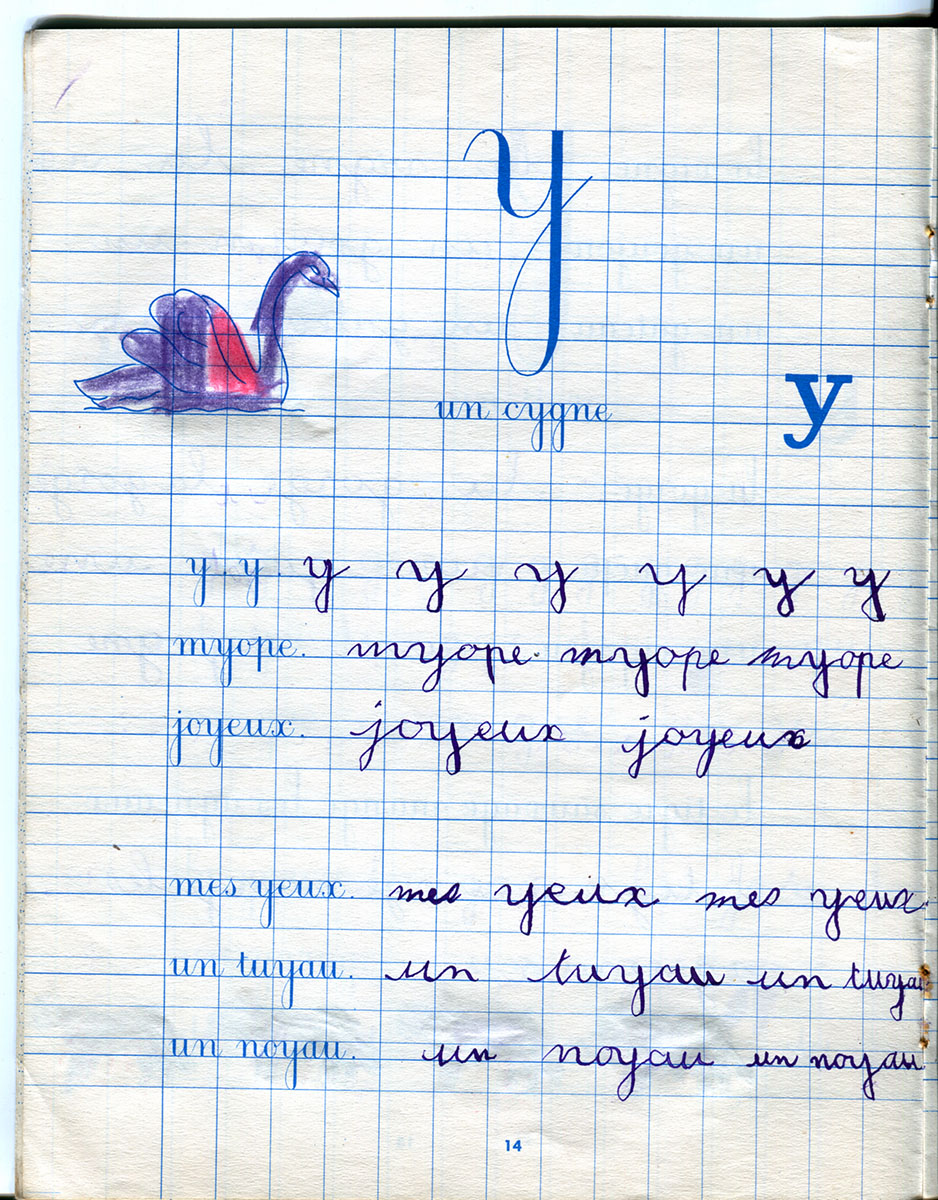 y
un cygne
y
y y y y y y y y
myope. myope. myope myope
joyeux. joyeux joyeux
mes yeux. mes yeux mes yeux.
un tuyau. un tuyau un tuyau
un noyau. un noyau un noyau
14